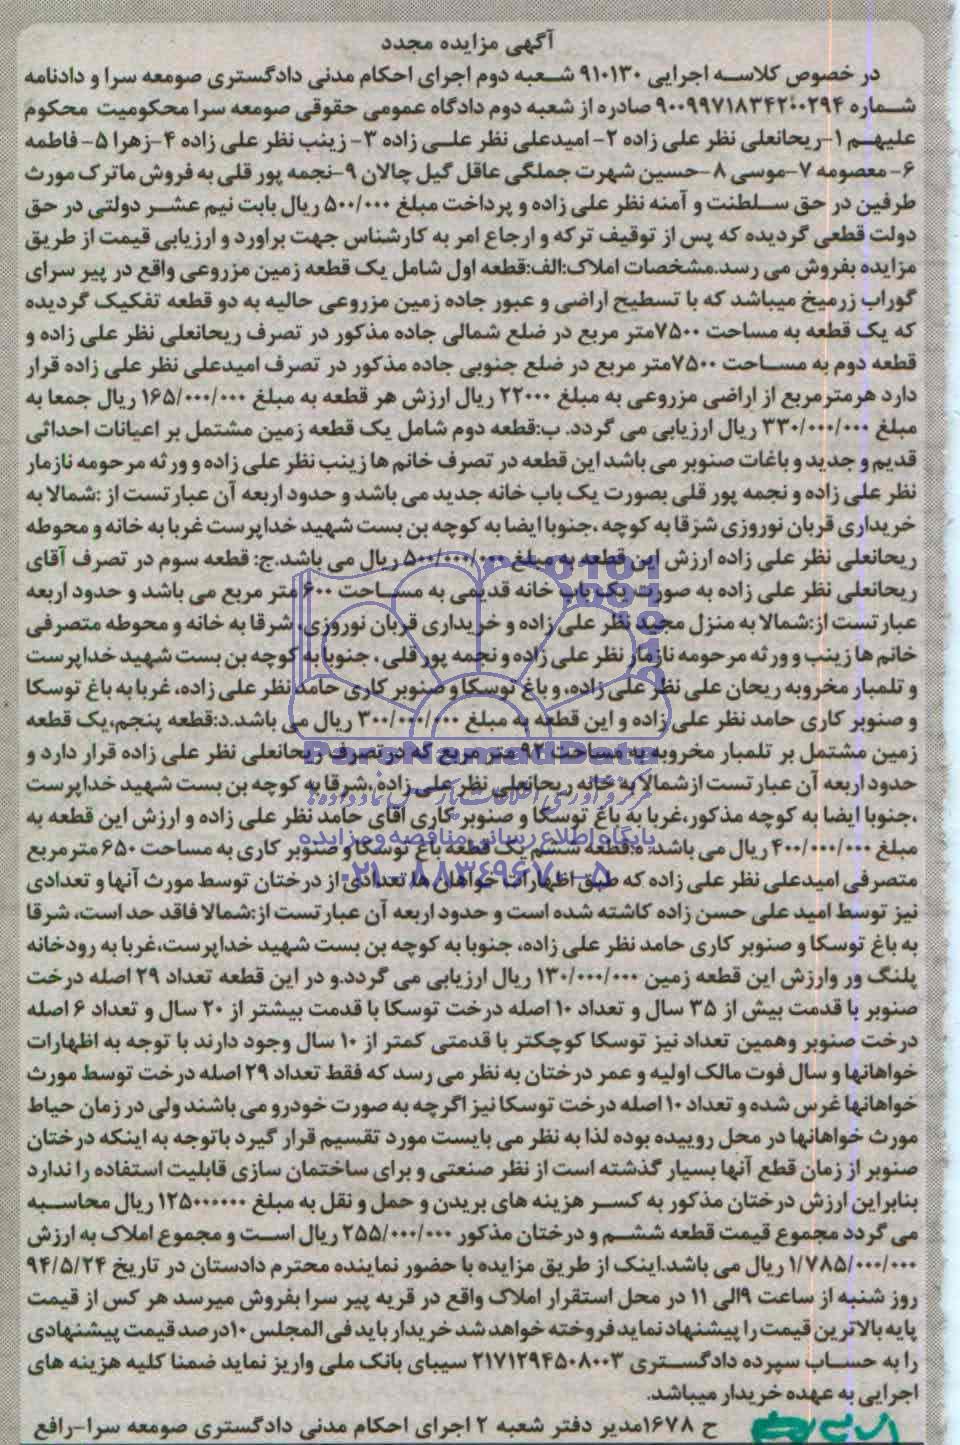 آگهی مزایده مجدد
در خصوص کلاسه اجرایی ۹۱۰۱۳۰ شعبه دوم اجرای احکام مدنی دادگستری صومعه سرا و دادنامه
شماره ۹۰۰۹۹۷۱۸۳۴۲۰۰۲۹۴ صادره از شعبه دوم دادگاه عمومی حقوقی صومعه سرا محکومیت محکوم
علیهم ۱-ریحانعلی نظر علی زاده ۲- امیدعلی نظر علی زاده ۳- زینب نظر علی زاده ۴-زهرا ۵- فاطمه
۶- معصومه ۷-موسی ۸-حسین شهرت جملگی عاقل گیل چالان ۹-نجمه پور قلی به فروش ماترک مورث
طرفین در حق سلطنت و آمنه نظر علی زاده و پرداخت مبلغ ۵۰۰/۰۰۰ ریال بابت نیم عشر دولتی در حق
دولت قطعی گردیده که پس از توقیف ترکه و ارجاع امر به کارشناس جهت براورد و ارزیابی قیمت از طریق
مزایده بفروش می رسد.مشخصات املاک:الف:قطعه اول شامل یک قطعه زمین مزروعی واقع در پیر سرای
گوراب زرمیخ میباشد که با تسطیح اراضی و عبور جاده زمین مزروعی حالیه به دو قطعه تفکیک گردیده
که یک قطعه به مساحت ۷۵۰۰متر مربع در ضلع شمالی جاده مذکور در تصرف ریحانعلی نظر علی زاده و
قطعه دوم به مساحت ۷۵۰۰متر مربع در ضلع جنوبی جاده مذکور در تصرف امیدعلی نظر علی زاده قرار
دارد هرمترمربع از اراضی مزروعی به مبلغ ۲۲۰۰۰ ریال ارزش هر قطعه به مبلغ ۱۶۵/۰۰۰/۰۰۰ ریال جمعا به
مبلغ ۳۳۰/۰۰۰/۰۰۰ ریال ارزیابی می گردد. ب:قطعه دوم شامل یک قطعه زمین مشتمل بر اعیانات احداثی
قدیم و جدید و باغات صنوبر می باشد این قطعه در تصرف خانم ها زینب نظر علی زاده و ورثه مرحومه نازمار
نظر علی زاده و نجمه پور قلی بصورت یک باب خانه جدید می باشد و حدود اربعه آن عبارتست از :شمالا به
خریداری قربان نوروزی شرقا به کوچه ،جنوبا ایضا به کوچه بن بست شهید خداپرست غربا به خانه و محوطه
ریحانعلی نظر علی زاده ارزش این قطعه به مبلغ ۵۰۰/۰۰۰/۰۰۰ ریال می باشد.ج: قطعه سوم در تصرف آقای
ریحانعلی نظر علی زاده به صورت یک باب خانه قدیمی به مساحت ۶۰۰ متر مربع می باشد و حدود اربعه
عبارتست از:شمالا به منزل مجید نظر علی زاده و خریداری قربان نوروزی، شرقا به خانه و محوطه متصرفی
خانم ها زینب و ورثه مرحومه نازمار نظر علی زاده و نجمه پور قلی ، جنوبا به کوچه بن بست شهید خداپرست
و تلمبار مخروبه ریحان علی نظر علی زاده، و باغ توسکا و صنوبر کاری حامد نظر علی زاده، غربا به باغ توسکا
و صنوبر کاری حامد نظر علی زاده و این قطعه به مبلغ ۳۰۰/۰۰۰/۰۰۰ ریال می باشد.د:قطعه پنجم،یک قطعه
زمین مشتمل بر تلمبار مخروبه به مساحت ۹۲ متر مربع که در تصرف ریحانعلی نظر علی زاده قرار دارد و
ParsNamadData
حدود اربعه آن عبارتست ازشمالا به خانه ریحانعلی نظر علی زاده،شرقا به کوچه بن بست شهید خداپرست
،جنوبا ایضا به کوچه مذکور،غربا به باغ توسکا و صنوبر کاری آقای حامد نظر علی زاده و ارزش این قطعه به
پایگاه اطلاع رسانی مناقصه و مزایده
مبلغ ۴۰۰/۰۰۰/۰۰۰ ریال می باشد. ه:قطعه ششم یک قطعه باغ توسکا و صنوبر کاری به مساحت ۶۵۰ مترمربع
۰۲۱-۸۸۳۴۹۶۷۰-۵
متصرفی امیدعلی نظر علی زاده که طبق اظهارات خواهان ها،تعدادی از درختان توسط مورث آنها و تعدادی
نیز توسط امید علی حسن زاده کاشته شده است و حدود اربعه آن عبارتست از:شمالا فاقد حد است، شرقا
به باغ توسکا و صنوبر کاری حامد نظر علی زاده، جنوبا به کوچه بن بست شهید خداپرست،غربا به رودخانه
پلنگ ور وارزش این قطعه زمین ۱۳۰/۰۰۰/۰۰۰ ریال ارزیابی می گردد.و در این قطعه تعداد ۲۹ اصله درخت
صنوبر با قدمت بیش از ۳۵ سال و تعداد ۱۰ اصله درخت توسکا با قدمت بیشتر از ۲۰ سال و تعداد ۶ اصله
درخت صنوبر وهمین تعداد نیز توسکا کوچکتر با قدمتی کمتر از ۱۰ سال وجود دارند با توجه به اظهارات
خواهانها و سال فوت مالک اولیه و عمر درختان به نظر می رسد که فقط تعداد ۲۹ اصله درخت توسط مورث
خواهانها غرس شده و تعداد ۱۰ اصله درخت توسکا نیز اگرچه به صورت خودرو می باشند ولی در زمان حیاط
مورث خواهانها در محل روییده بوده لذا به نظر می بایست مورد تقسیم قرار گیرد باتوجه به اینکه درختان
صنوبر از زمان قطع آنها بسیار گذشته است از نظر صنعتی و برای ساختمان سازی قابلیت استفاده را ندارد
بنابراین ارزش درختان مذکور به کسر هزینه های بریدن و حمل و نقل به مبلغ ۱۲۵۰۰۰۰۰۰ ریال محاسبه
می گردد مجموع قیمت قطعه ششم و درختان مذکور ۲۵۵/۰۰۰/۰۰۰ ریال است و مجموع املاک به ارزش
۱/۷۸۵/۰۰۰/۰۰۰ ریال می باشد.اینک از طریق مزایده با حضور نماینده محترم دادستان در تاریخ ۹۴/۵/۲۴
روز شنبه از ساعت ۹الی ۱۱ در محل استقرار املاک واقع در قریه پیر سرا بفروش میرسد هر کس از قیمت
پایه بالاترین قیمت را پیشنهاد نماید فروخته خواهد شد خریدار باید فی المجلس ۱۰درصد قیمت پیشنهادی
را به حساب سپرده دادگستری ۲۱۷۱۲۹۴۵۰۸۰۰۳ سیبای بانک ملی واریز نماید ضمنا کلیه هزینه های
اجرایی به عهده خریدار میباشد.
ح ۱۶۷۸مدیر دفتر شعبه ۲ اجرای احکام مدنی دادگستری صومعه سرا-رافع